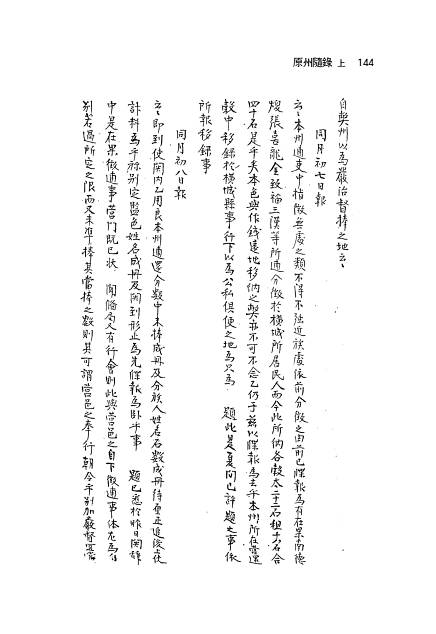 原州隨錄 上 144
自興州以爲嚴治督捧之地云云
同月初七日報
云云本州逋吏中指徵無處之類不得不族近族處依前分徵之由前已牒報爲有在果南德
煥張喜龍金致福三漢等所逋分徵於橫城所居民人而今此所納各穀太二十二石租十六石合
四十石是乎夫本色與作錢遠地移納之弊亦不可不念乙仍于玆以牒報爲去乎本州所在還
穀中移錄於橫城縣事行下以爲公私俱便之地爲只爲 題此是夏間已許題之事依
所報移錄事
同月初八日報
云云即到使關內乙用良本州逋還分數中未捧成冊及分族人姓名石數成冊
計料爲乎旀別定監色姓名成冊及關到形止爲先牒報爲臥乎事 題已悉於昨日關辭
中是在果徵逋事營門既已狀聞備局又有行會則此與營邑之自下徵逋事體
別若過所定之限而又未準捧其當捧之數則其可謂營邑之奉行朝令乎別加嚴督